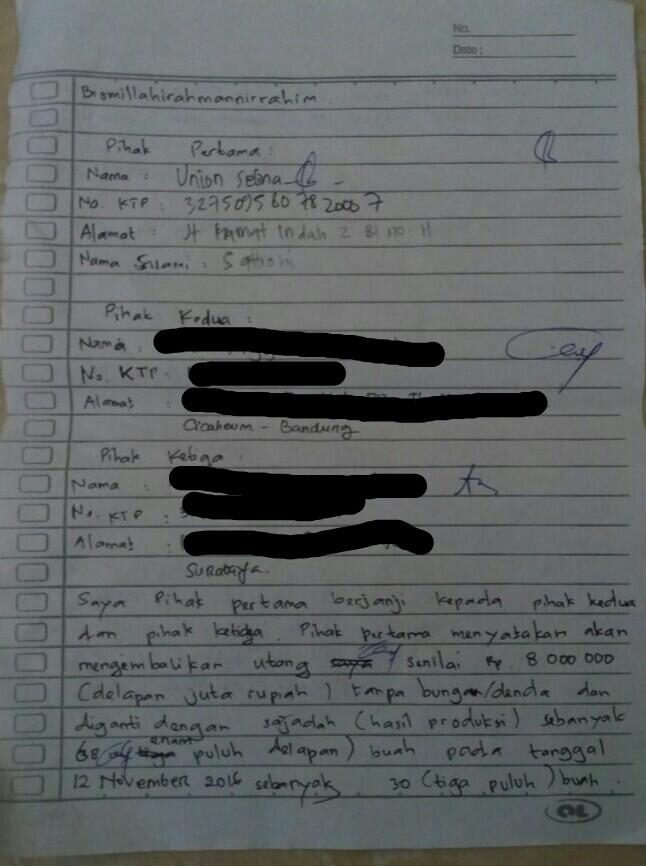 No.
Date :
Bismillahirahmannirrahim.
Pihak Pertama :
Nama : Union Selina
No. KTP : 3275095607820007
Alamat : Jl Kramat Indah 2 Bl no 11
Nama Suami :
Pihak Kedua :
Nama :
No. KTP :
Alamat :
Cicaheum - Bandung
Pihak Ketiga :
Nama :
No. KTP :
Alamat :
Surabaya.
Saya Pihak pertama berjanji kepada pihak kedua
dan pihak ketiga. Pihak pertama menyatakan akan
mengembalikan utang senilai Rp. 8 000 000
(delapan juta rupiah) tanpa bunga/denda dan
diganti dengan sajadah (hasil produksi) sebanyak
68 (enam puluh delapan) buah pada tanggal
12 November 2016 sebanyak 30 (tiga puluh) buah.